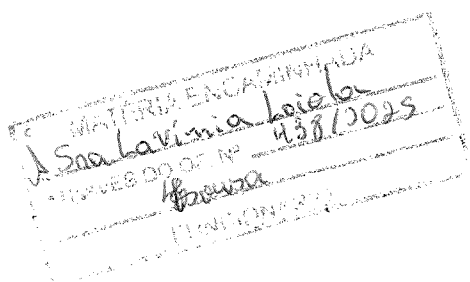 MATÉRIA ENCAMINHADA
A Sra Lavínia Loiola
ATRAVÉS DO OF. Nº 438/2025
Souza
FUNCIONÁRIO